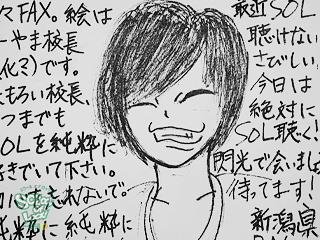 々FAX。絵は
ーやま校長
化ミ)です。
もろい校長、
つまでも
OLを純粋に
きでいて下さい。
れないで。
純粋に純粋に
最近SOL
聴けない
さびしい。
今日は
絶対に
SOL聴く!
閃光で会いま
待ってます!
新潟県